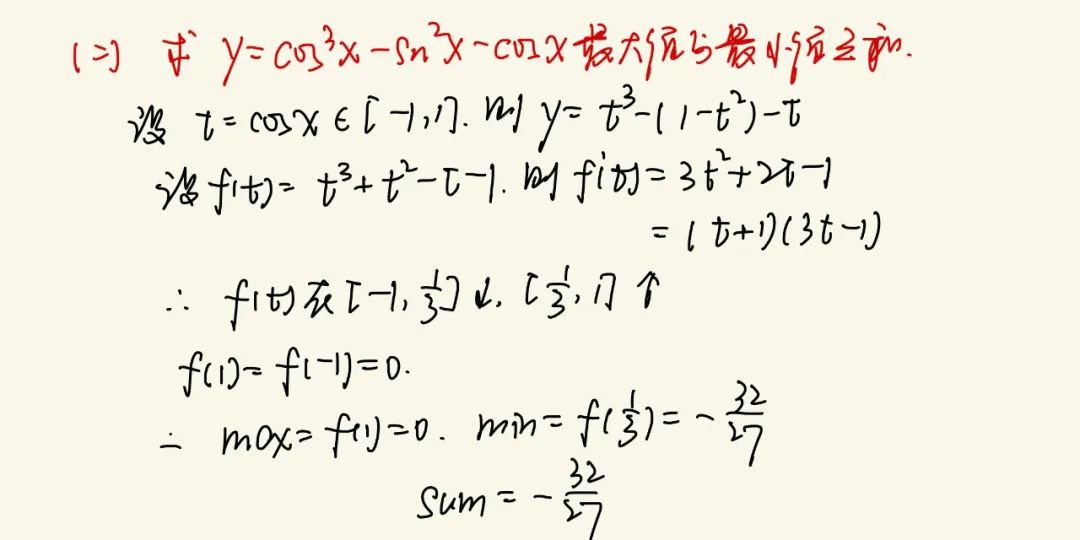 (二) 求 y=cos³x-sn²x-cosx最大值与最小值之和.
设 t=cosx∈[-1,1]. 则 y=t³-(1-t²)-t
设f(t)=t³+t²-t-1. 则f'(t)=3t²+2t-1
=(t+1)(3t-1)
∴ f(t)在[-1,1/3]↓. [1/3,1]↑
f(1)=f(-1)=0.
∴ max=f(1)=0. min=f(1/3)=-32/27
Sum=-32/27